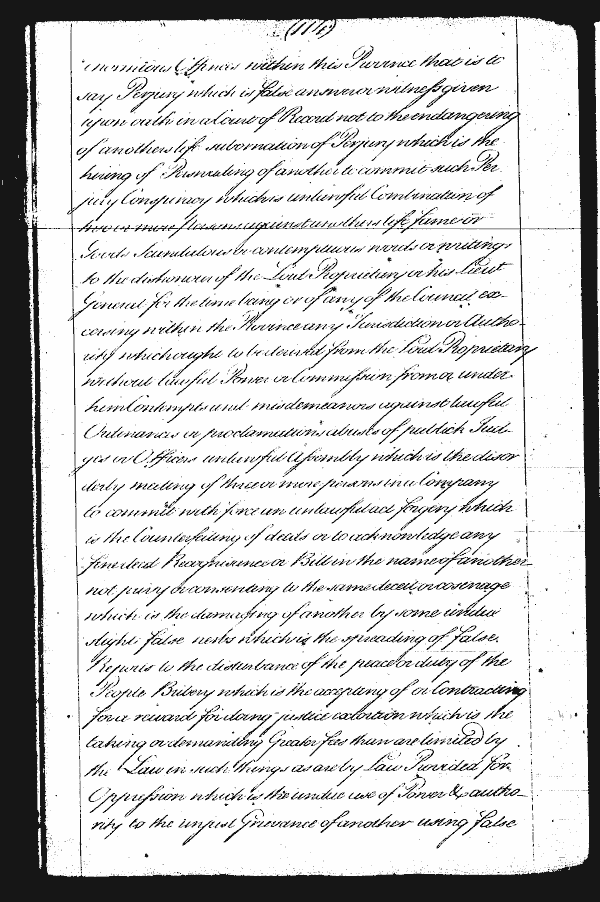 (114)
enormious Offences within this Province that is to
say Perjury which is false answer or witness given
upon oath in a Court of Record not to the endangering
of anothers life subornation of Perjury which is the
hiring of Perswading of another to commit such Per
jury Conspiracy which is unlawful Combination of
two or more persons against anothers life fame or
Goods Scandalous or contemptuous words or writings
to the dishonour of the Lord Proprietary or his Lieut
General for the time being or of any of the Council, ex-
cersing within the Province any Jurisdiction or Autho-
rity which ought to be derived from the Lord Proprietary
without lawful Power or Commission from or under
him Contempts and misdemeanors against lawful
Ordinances or proclamations abuses of publick Jud-
ges or Officers unlawful Assembly which is the disor
derly meeting of three or more persons in a Company
to commit with force an unlawful act forgery which
is the Counterfaiting of deeds or to acknowledge any
fine deed Recognisance or Bill in the name of another
not privy or consenting to the same deceit or cosenage
which is the damaging of another by some undue
slight false news which is the spreading of false
Reports to the disturbance of the peace or duty of the
People Bribery which is the accepting of or Contracting
for a reward for doing justice extortion which is the
taking or demanding Greater fees than are limited by
the Law in such things as are by Law Provided for
Oppression which is the undue use of Power & autho-
rity to the unjust Grievance of another using false